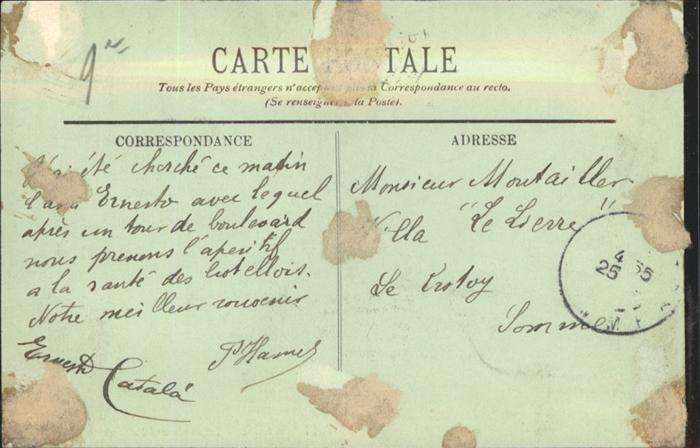 9
CARTE POSTALE
Tous les Pays étrangers n'acceptent pas la Correspondance au recto.
(Se renseigner à la Poste).
CORRESPONDANCE
ADRESSE
J'ai été cherché ce matin
Ernesto avec lequel
après un tour de boulevard
nous prenons l'aperitif
a la santé des
Notre meilleur souvenir
Ernesto Catalá
P. Hamel
Monsieur Moutailler
Villa "Le Lierre"
Le Crotoy
Somme
4
25